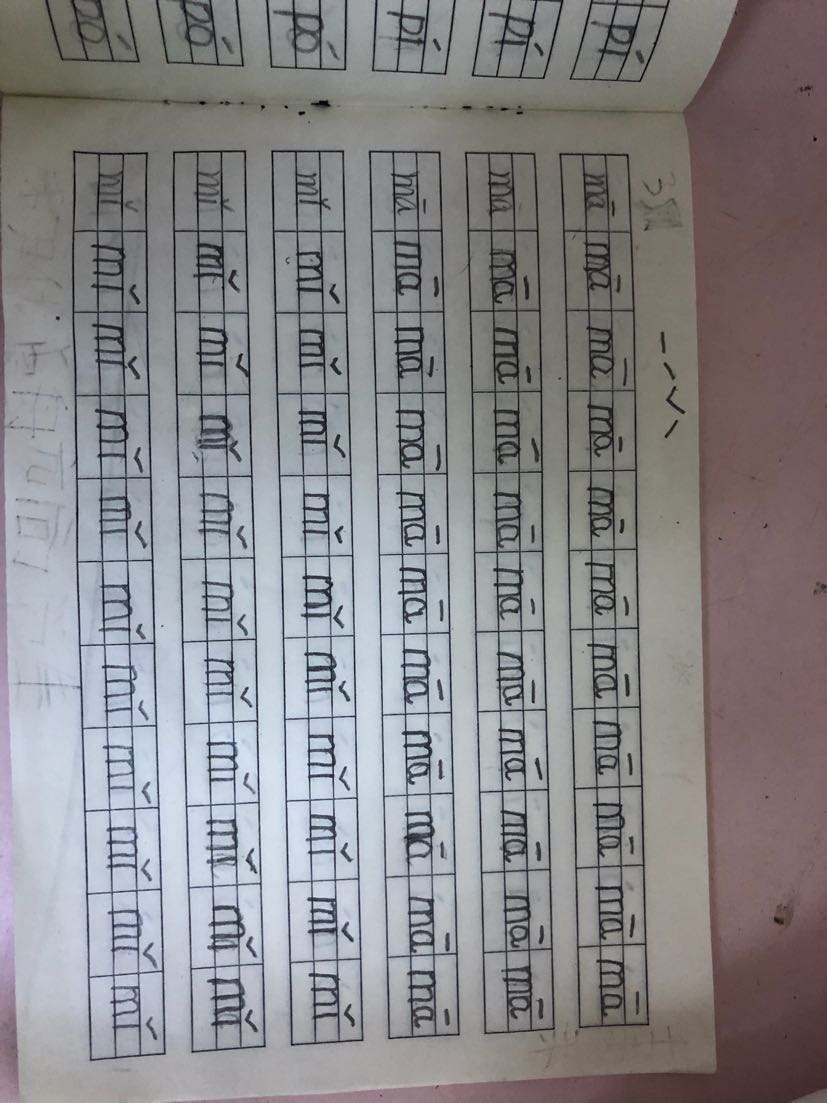 pí
pí
pí
pó
pó
pó
ˉ ˊ ˇ ˋ
mā mā mā mā mā mā mā mā mā mā mā
mā mā mā mā mā mā mā mā mā mā mā
mā mā mā mā mā mā mā mā mā mā mā
mǐ mǐ mǐ mǐ mǐ mǐ mǐ mǐ mǐ mǐ mǐ
mǐ mǐ mǐ mǐ mǐ mǐ mǐ mǐ mǐ mǐ mǐ
mǐ mǐ mǐ mǐ mǐ mǐ mǐ mǐ mǐ mǐ mǐ